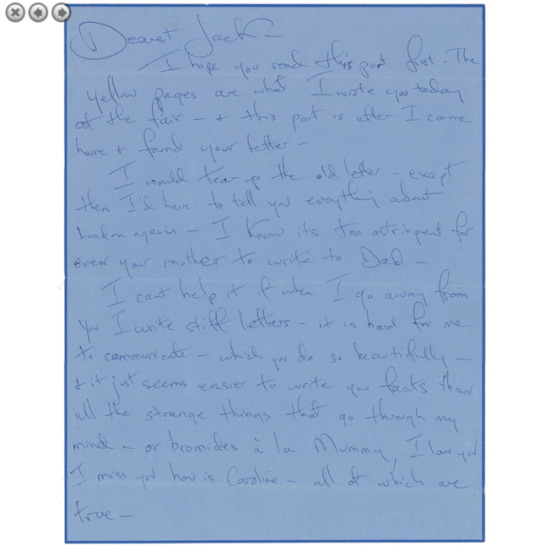 Dearest Jack –
I hope you read this part first – The
Yellow pages are what I wrote you today
at the fair – & this part is after I came
home & found your letter –
I would tear up the old letter – except
then I'd have to tell you everything about
London again – I know its too astringent for
even your mother to write to Dad –
I cant help it if when I go away from
you I write stiff letters – it is hard for me
to communicate – which you do so beautifully –
& it just seems easier to write you facts than
all the strange things that go through my
mind – or bromides à la Mummy, I love you
I miss you how is Caroline – all of which are
true –